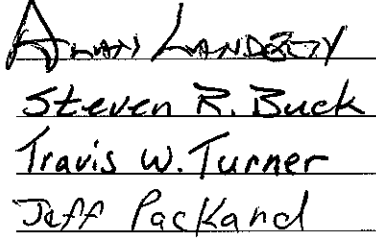 Alan
Steven R. Buck
Travis W. Turner
Jeff Packand